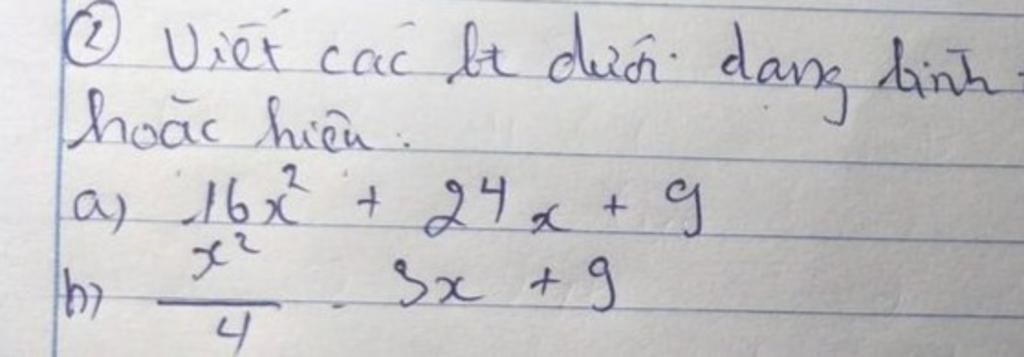 ② Viết các bt dưới dạng bình
hoặc hiệu.
a) 16x² + 24x + 9
b) x²/4 - 3x + 9